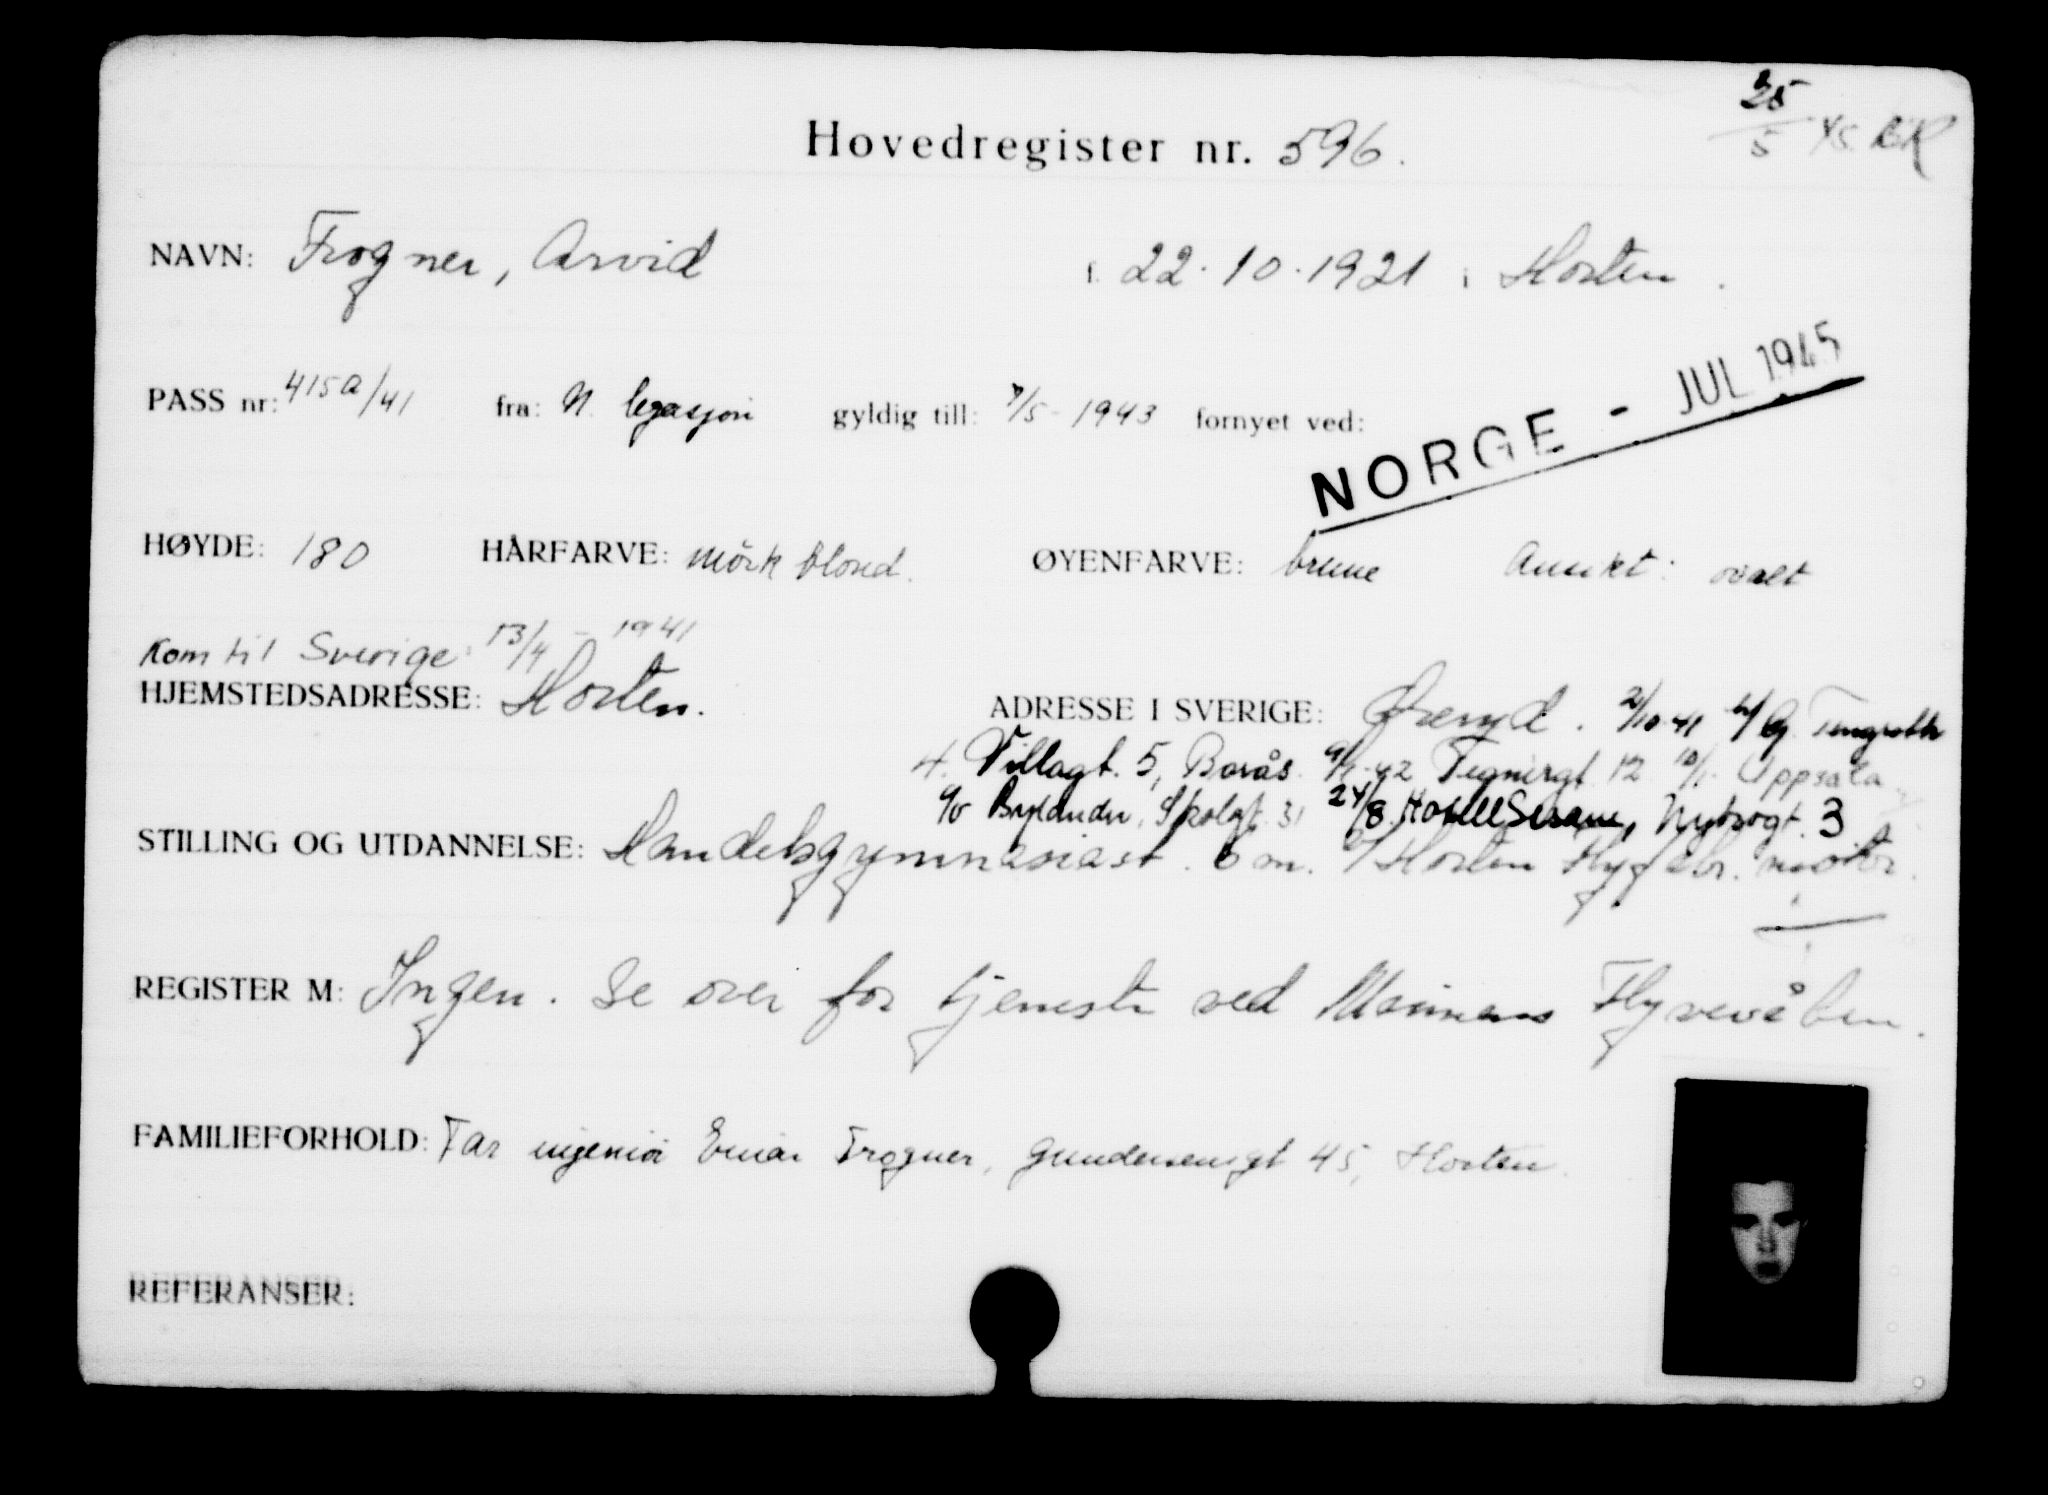 25/5 45. BR
Hovedregister nr. 596.
NAVN: Frogner, Arvid f. 22.10.1921 i Horten.
PASS nr: 415a/41 fra: N. legasjon gyldig till: 7/5 - 1943 fornyet ved:
NORGE - JUL 1945
HØYDE: 180 HÅRFARVE: mörk blond. ØYENFARVE: brune Ansikt: ovalt
Kom til Sverige: 13/4 - 1941
HJEMSTEDSADRESSE: Horten. ADRESSE I SVERIGE: Øreryd. 2/10-41 Tengroth
4. Villagt. 5, Borås. Tegnérgt. 12 Uppsala
c/o Rylander, Skolgt. 31 24/8. Hotell Sesam, Nybrogt. 3
STILLING OG UTDANNELSE: Handelsgymnasiast. 6 m. Horten Flyfabr. motor.
REGISTER M: Ingen. Se over for tjeneste ved Marinens Flyvevåben.
FAMILIEFORHOLD: Far ingeniör Einar Frogner, Gundersensgt 45, Horten.
REFERANSER: